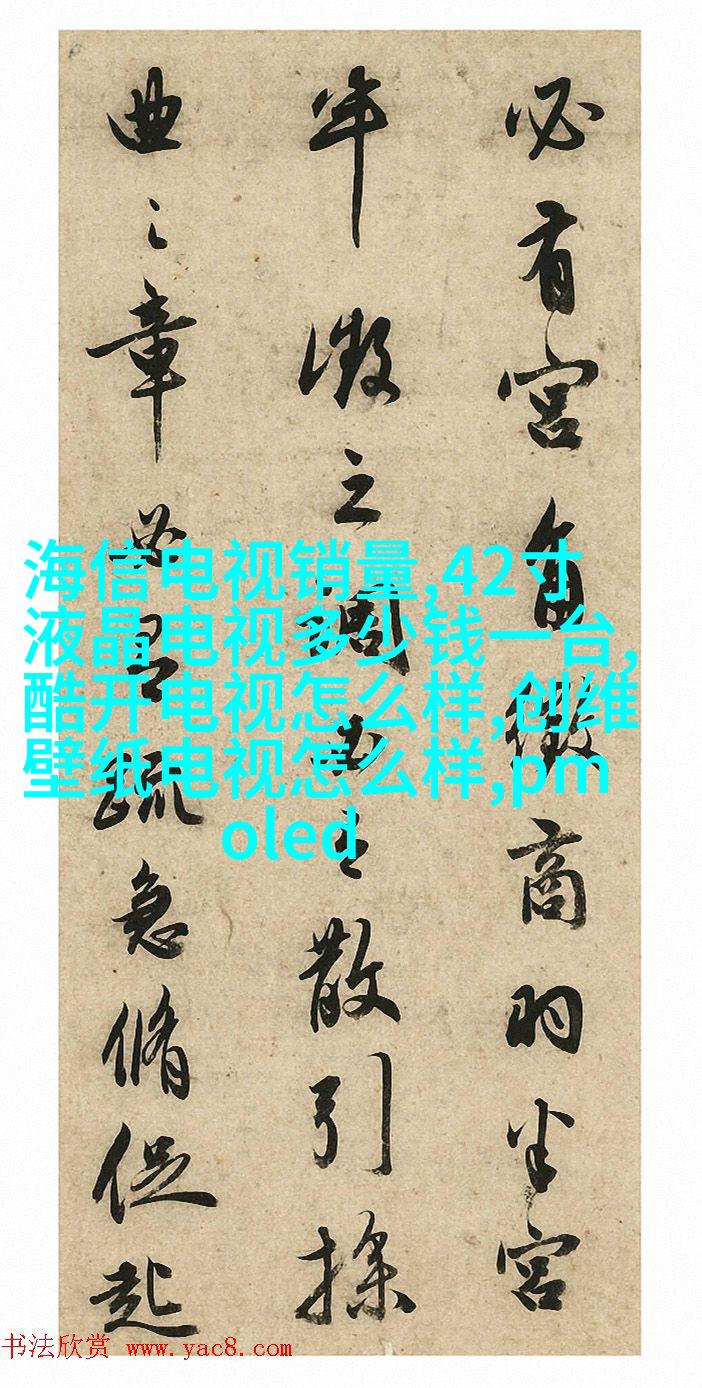 必有宮角徵商羽半宮
半徵之調必主散引操
曲之章必疏急脩促起
海信电视销量,42寸
液晶电视多少钱一台,
酷开电视怎么样,创维
壁纸电视怎么样,pm
oled
书法欣赏 www.yac8.com